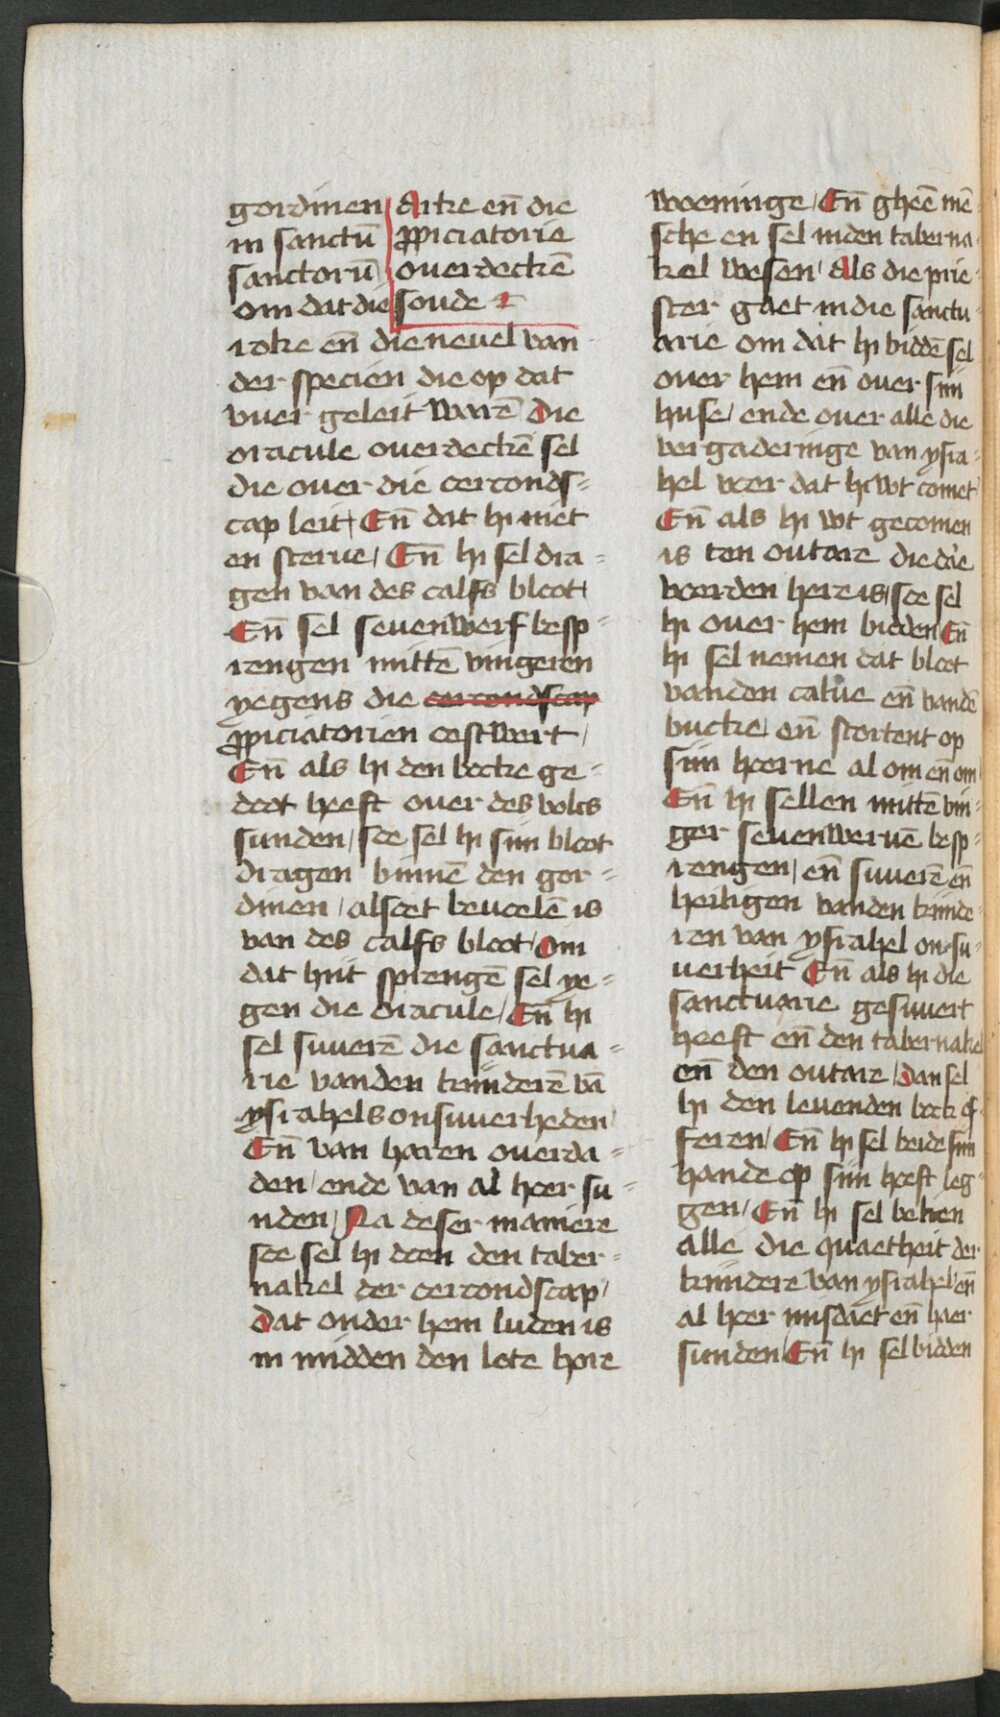 gordinen
in sanctū
sanctorū
om dat die
Arke en̄ die
ꝓpiciatorie
ouerdeckē
soude
roke en̄ die neuel van
der specien die op dat
vuer geleit warē Die
oracule ouerdeckē sel
die ouer die oercondſ⸗
cap leit En̄ dat hi niet
en sterue En̄ hi sel dra⸗
gen van des calfs bloet
En̄ sel seuenwerf besp⸗
rengen mittē vingeren
yegens die oercondscap
ꝓpiciatorien oestwert
En̄ als hi den bocke ge⸗
doot heeft ouer des volcs
sunden / soe sel hi sijn bloet
dragen binnē den gor⸗
dinen / alsoet beuolē is
van des calfs bloet Om
dat hijt sprengē sel ye⸗
gen die oracule / En̄ hi
sel suuerē die sanctua⸗
rie vanden kinderē vā
ysrahels onsuuerheden
En̄ van haren ouerda⸗
den / ende van al hoer su⸗
nden / Na deser maniere
soe sel hi doen den taber⸗
nakel der oercondscap /
Dat onder hem luden is
in midden den lote hore
woeninge / En̄ gheē mē
sche en sel inden taberna⸗
kel wesen / Als die prie⸗
ster gaet in die sanctu⸗
arie om dat hi biddē sel
ouer hem en̄ ouer sijn
huse / ende ouer alle die
vergaderinge van ysra⸗
hel voer dat hi wt comet
En̄ als hi wt gecomen
is ten outare die dae
voerden here is / soe sel
hi ouer hem bidden En̄
hi sel nemen dat bloet
vanden calue en̄ vandē
bucke / en̄ stortent op
sijn hoerne al om en̄ om
En̄ hi sellen mittē vin⸗
ger seuenweruē besp⸗
rengen / en̄ suuerē en̄
heiligen vanden kinde⸗
ren van ysrahel onsu⸗
uerheit En̄ als hi die
sanctuarie gesuuert
heeft en̄ den tabernakel
en̄ den outare / Dan sel
hi den leuenden bock of⸗
feren / En̄ hi sel beide sijn
hande op sijn hoeft leg⸗
gen / En̄ hi sel belien
alle die quaetheit der
kindere van ysrahel en̄
al hoer misdaet en̄ haer
sunden En̄ hi sel bidden